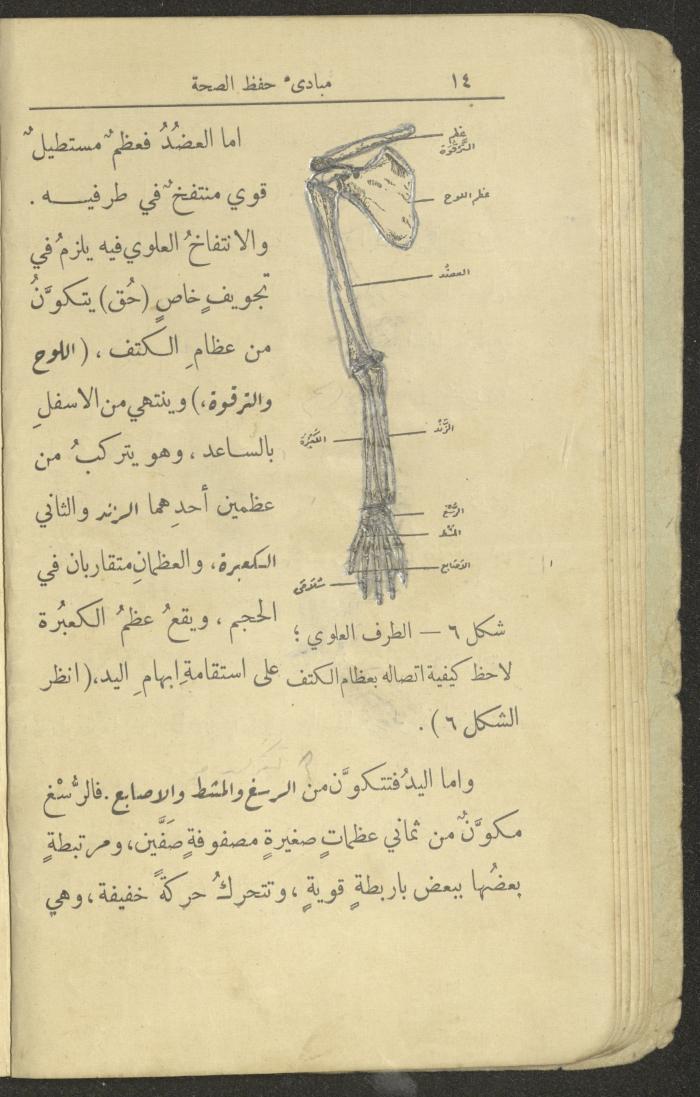 ١٤
مبادىء حفظ الصحة
عظم
التَّرْقُوَة
عظم اللوح
العضُد
الزَّنْد
الكَعْبُرَة
الرُّسْغ
المشط
الاصابع
سُلامَى
شكل ٦ — الطرف العلوي ؛
لاحظ كيفية اتصاله بعظام الكتف
اما العضُدُ فعظمٌ مستطيلٌ
قوي منتفخٌ في طرفيــه .
والانتفاخُ العلوي فيه يلزمُ في
تجويفٍ خاصٍ (حُق) يتكوَّنُ
من عظامِ الكتف ، (اللوح
والترقوة،) وينتهي من الاسفلِ
بالساعد ، وهو يتركبُ من
عظمين أحدِهما الزند والثاني
الكعبرة، والعظمانِ متقاربان في
الحجم ، ويقعُ عظمُ الكعبُرة
على استقامةِ إبهامِ اليد،(انظر
الشكل ٦) .
واما اليدُ فتتكوَّن من الرسغ والمشط والاصابع . فالرُّسْغ
مكوَّنٌ من ثماني عظماتٍ صغيرةٍ مصفوفةٍ صَفَّين، ومرتبطةٍ
بعضُها ببعض باربطةٍ قويةٍ ، وتتحركُ حركةً خفيفة ، وهي